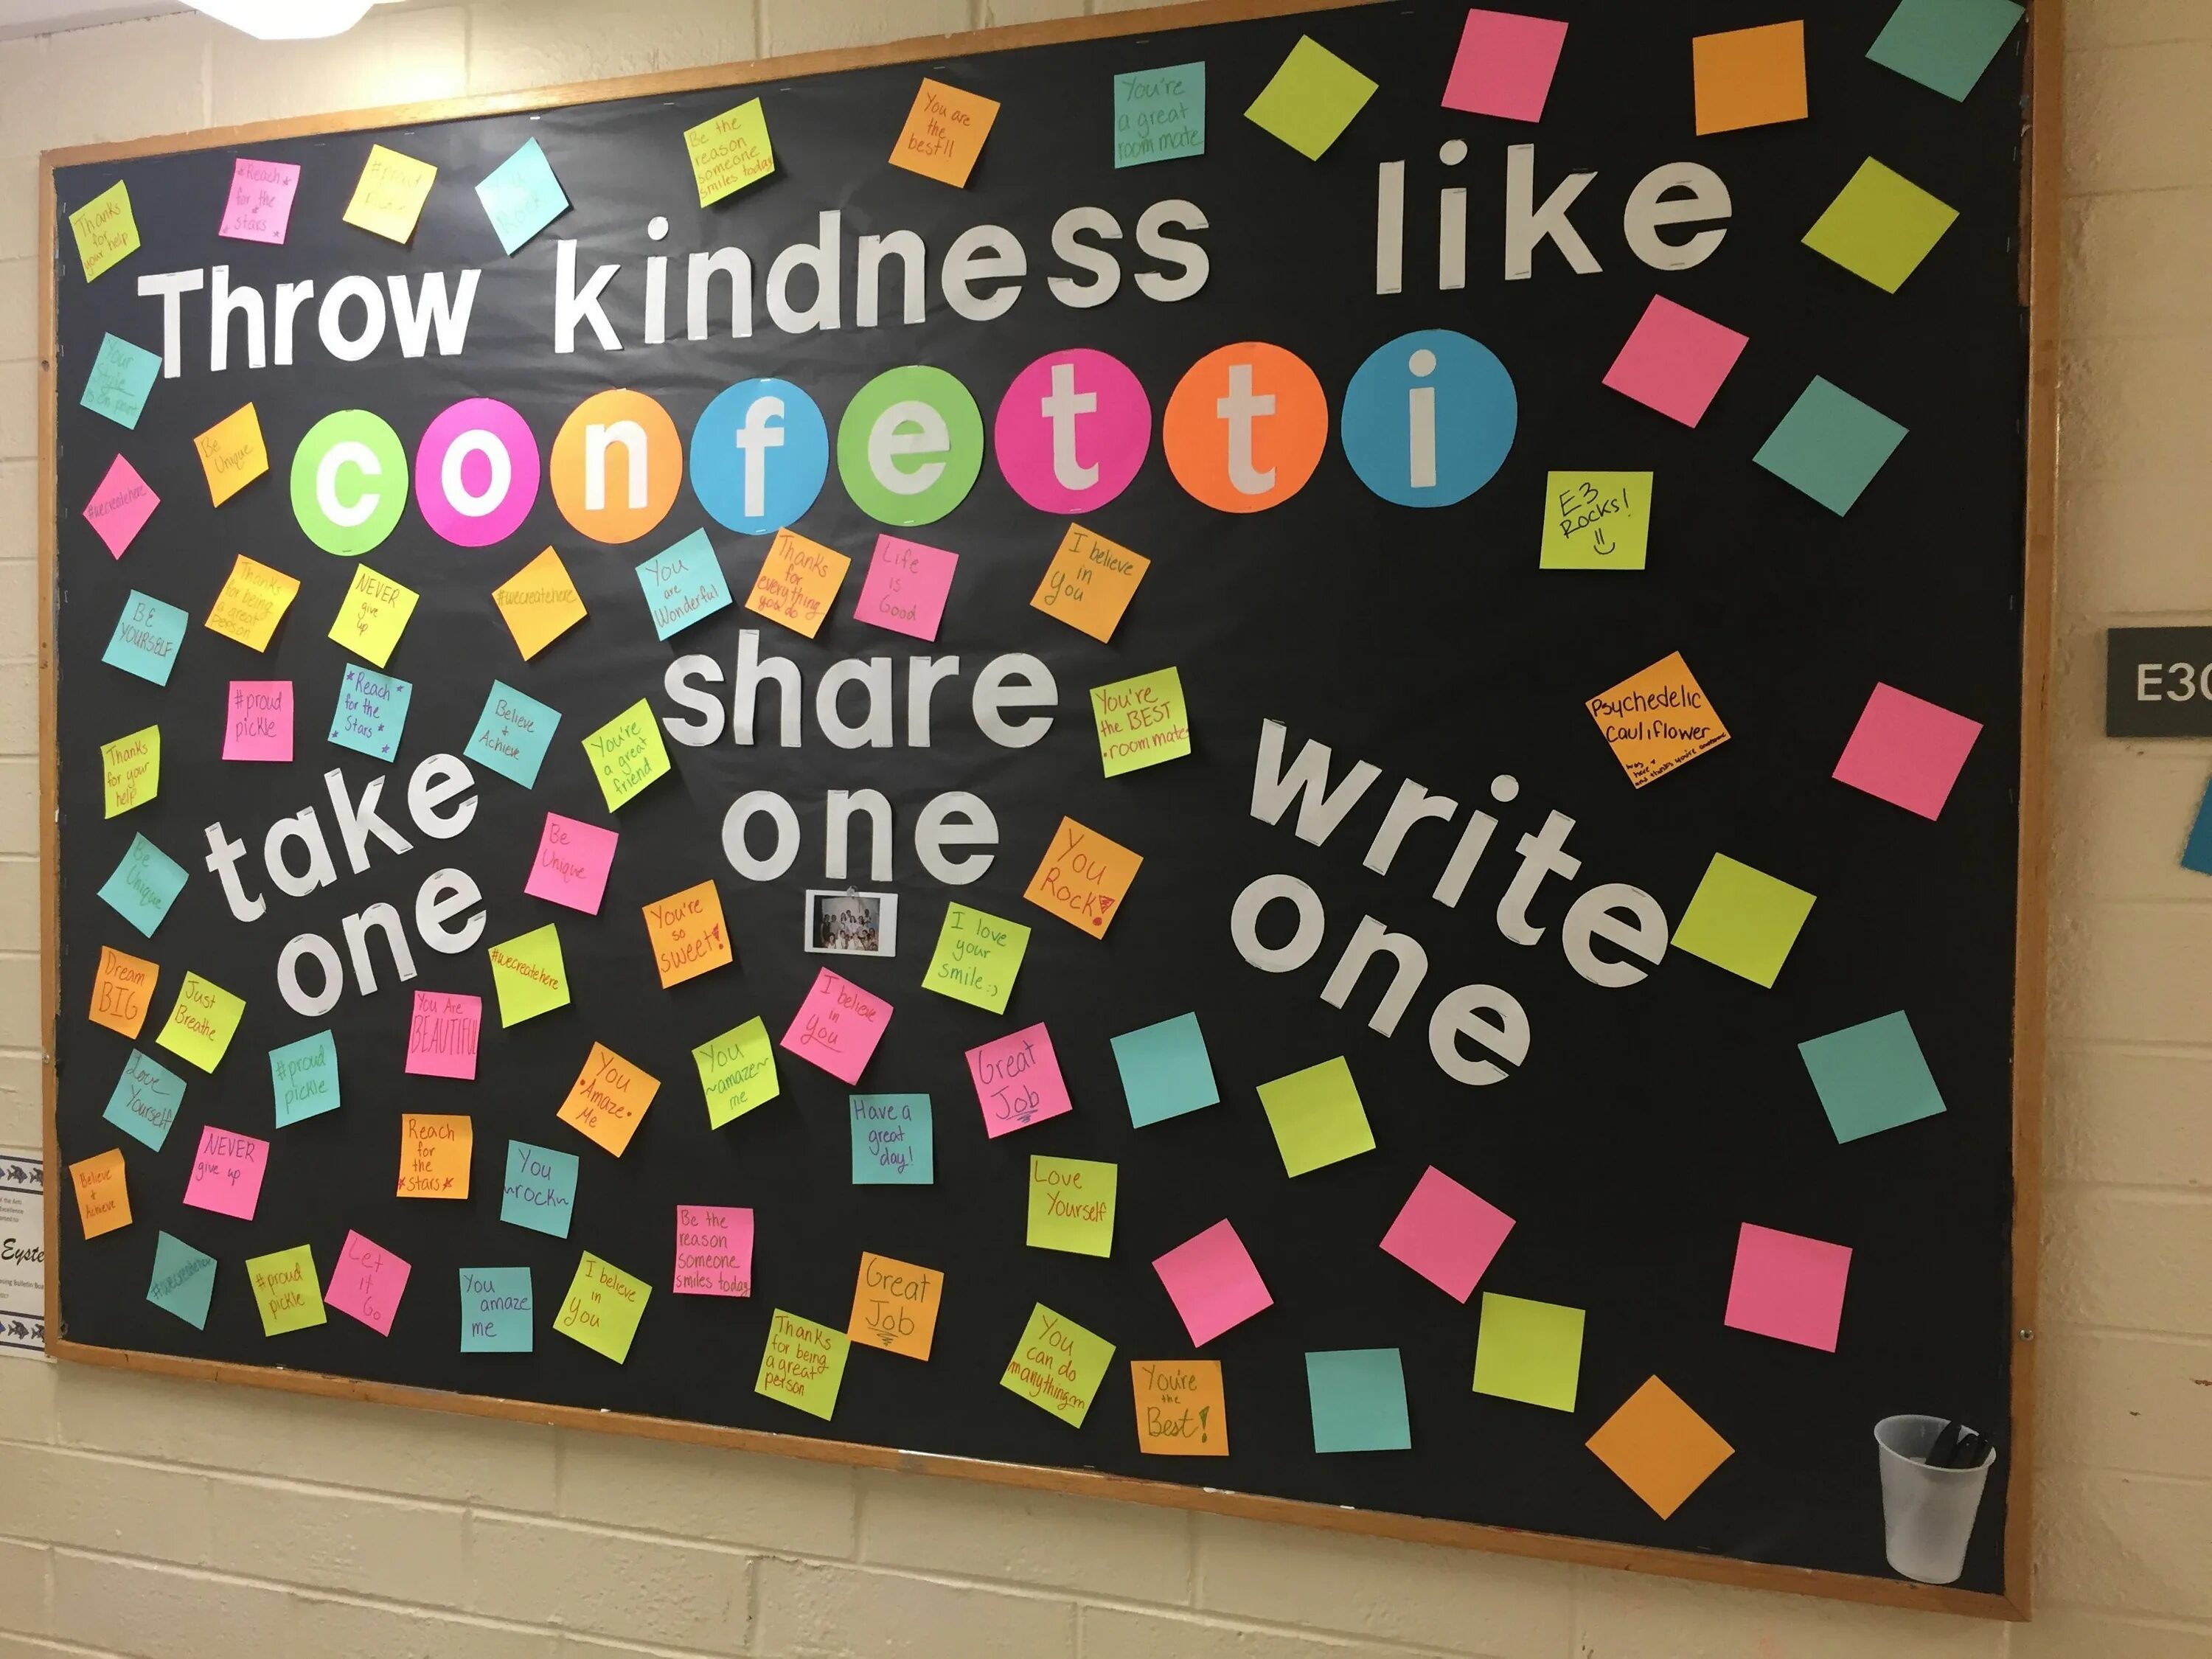 Throw kindness like
confetti
take
one
share
one
write
one
Thanks
for
your help
*Reach*
for the
* stars *
#proud
You
Rock
Be the
reason
someone
smiles today
You are
the
best!!
You're
a great
room mate
Your
Style
is on point
Be
Unique
#wecreatehere
E3
Rocks!
BE
YOURSELF
Thanks
for being
a great
person
NEVER
give
up
#wecreatehere
You
are
Wonderful
Thanks
for
everything
you do
Life
is
Good
I believe
in
you
#proud
pickle
*Reach *
for the
* Stars *
Believe
+
Achieve
You're
a great
friend
You're
the BEST
•roommate•
Psychedelic
Cauliflower
was
here +
E30
Thanks
for your
help
Be
Unique
Be
Unique
You're
so
sweet!
You
Rock!
I love
your
smile :)
Dream
BIG
Just
Breathe
You Are
BEAUTIFUL
#wecreatehere
I believe
in
you
Love
Yourself
#proud
pickle
You
•Amaze•
Me
You
~amaze~
me
Great
Job
Have a
great
day!
Believe
+
Achieve
NEVER
give up
Reach
for
the
*stars*
You
~rock~
Love
Yourself
#wecreatehere
#proud
pickle
Let
it
Go
You
amaze
me
I believe
in
you
Be the
reason
someone
smiles today
Great
Job
Thanks
for being
a great
person
You
can do
You're
the
Best!
Eyste